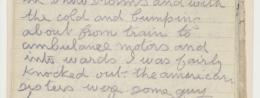 in snow storms and with
the cold and bumping
about from train to
ambulance motors and
into wards I was fairly
knocked out. the american
sisters were some guy